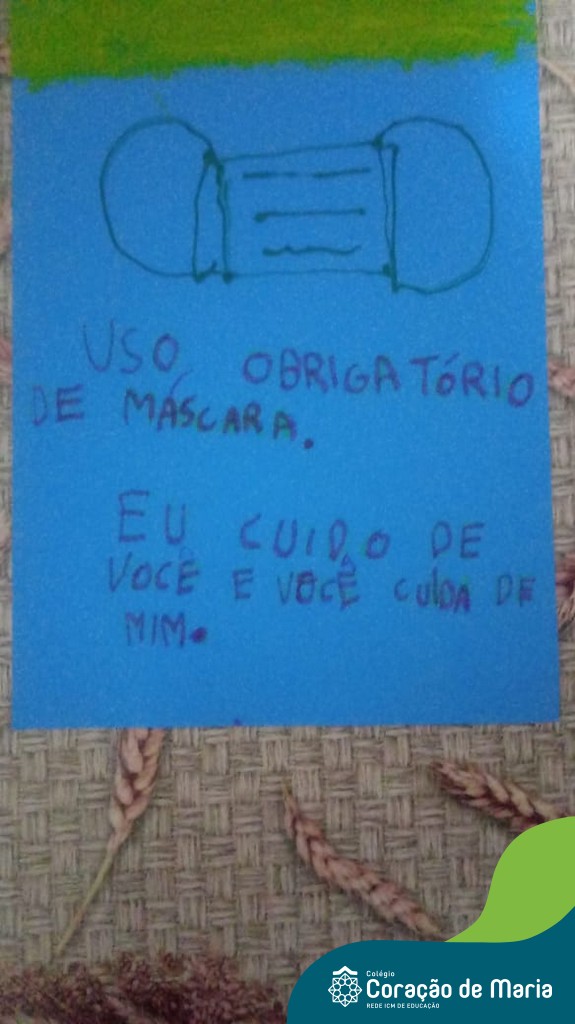 USO OBRIGATÓRIO
DE MÁSCARA.
EU CUIDO DE
VOCÊ E VOCÊ CUIDA DE
MIM.
Colégio
Coração de Maria
REDE ICM DE EDUCAÇÃO